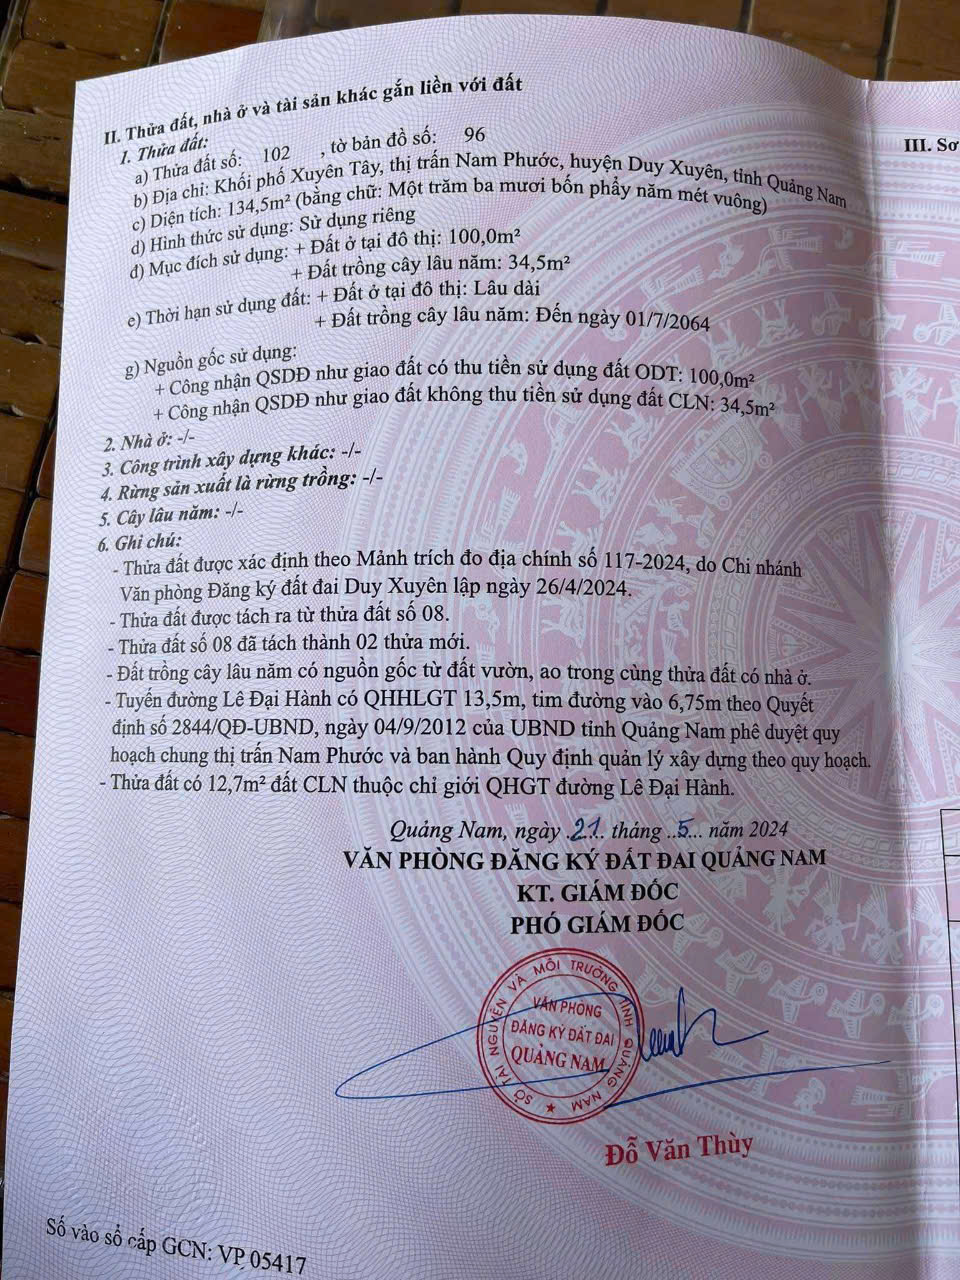 II. Thửa đất, nhà ở và tài sản khác gắn liền với đất
1. Thửa đất:
a) Thửa đất số: 102 , tờ bản đồ số: 96
b) Địa chỉ: Khối phố Xuyên Tây, thị trấn Nam Phước, huyện Duy Xuyên, tỉnh Quảng Nam
c) Diện tích: 134,5m² (bằng chữ: Một trăm ba mươi bốn phẩy năm mét vuông)
d) Hình thức sử dụng: Sử dụng riêng
đ) Mục đích sử dụng: + Đất ở tại đô thị: 100,0m²
+ Đất trồng cây lâu năm: 34,5m²
e) Thời hạn sử dụng đất: + Đất ở tại đô thị: Lâu dài
+ Đất trồng cây lâu năm: Đến ngày 01/7/2064
g) Nguồn gốc sử dụng:
+ Công nhận QSDĐ như giao đất có thu tiền sử dụng đất ODT: 100,0m²
+ Công nhận QSDĐ như giao đất không thu tiền sử dụng đất CLN: 34,5m²
2. Nhà ở: -/-
3. Công trình xây dựng khác: -/-
4. Rừng sản xuất là rừng trồng: -/-
5. Cây lâu năm: -/-
6. Ghi chú:
- Thửa đất được xác định theo Mảnh trích đo địa chính số 117-2024, do Chi nhánh
Văn phòng Đăng ký đất đai Duy Xuyên lập ngày 26/4/2024.
- Thửa đất được tách ra từ thửa đất số 08.
- Thửa đất số 08 đã tách thành 02 thửa mới.
- Đất trồng cây lâu năm có nguồn gốc từ đất vườn, ao trong cùng thửa đất có nhà ở.
- Tuyến đường Lê Đại Hành có QHHLGT 13,5m, tim đường vào 6,75m theo Quyết
định số 2844/QĐ-UBND, ngày 04/9/2012 của UBND tỉnh Quảng Nam phê duyệt quy
hoạch chung thị trấn Nam Phước và ban hành Quy định quản lý xây dựng theo quy hoạch.
- Thửa đất có 12,7m² đất CLN thuộc chỉ giới QHGT đường Lê Đại Hành.
Quảng Nam, ngày .21.. tháng ..5... năm 2024
VĂN PHÒNG ĐĂNG KÝ ĐẤT ĐAI QUẢNG NAM
KT. GIÁM ĐỐC
PHÓ GIÁM ĐỐC
SỞ TÀI NGUYÊN VÀ MÔI TRƯỜNG TỈNH QUẢNG NAM
VĂN PHÒNG
ĐĂNG KÝ ĐẤT ĐAI
QUẢNG NAM
Đỗ Văn Thùy
Số vào sổ cấp GCN: VP 05417
III. Sơ